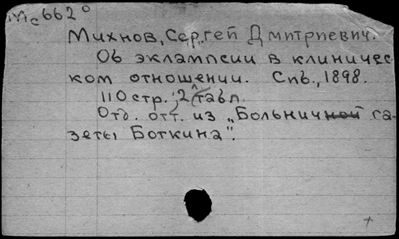 Мс662°
Михнов, Сергей Дмитриевич.
Об эклампсии в клиничес-
ком отношении. Спб., 1898.
110 стр., 2 табл.
Отд. отт. из „Больничной га-
зеты Боткина".